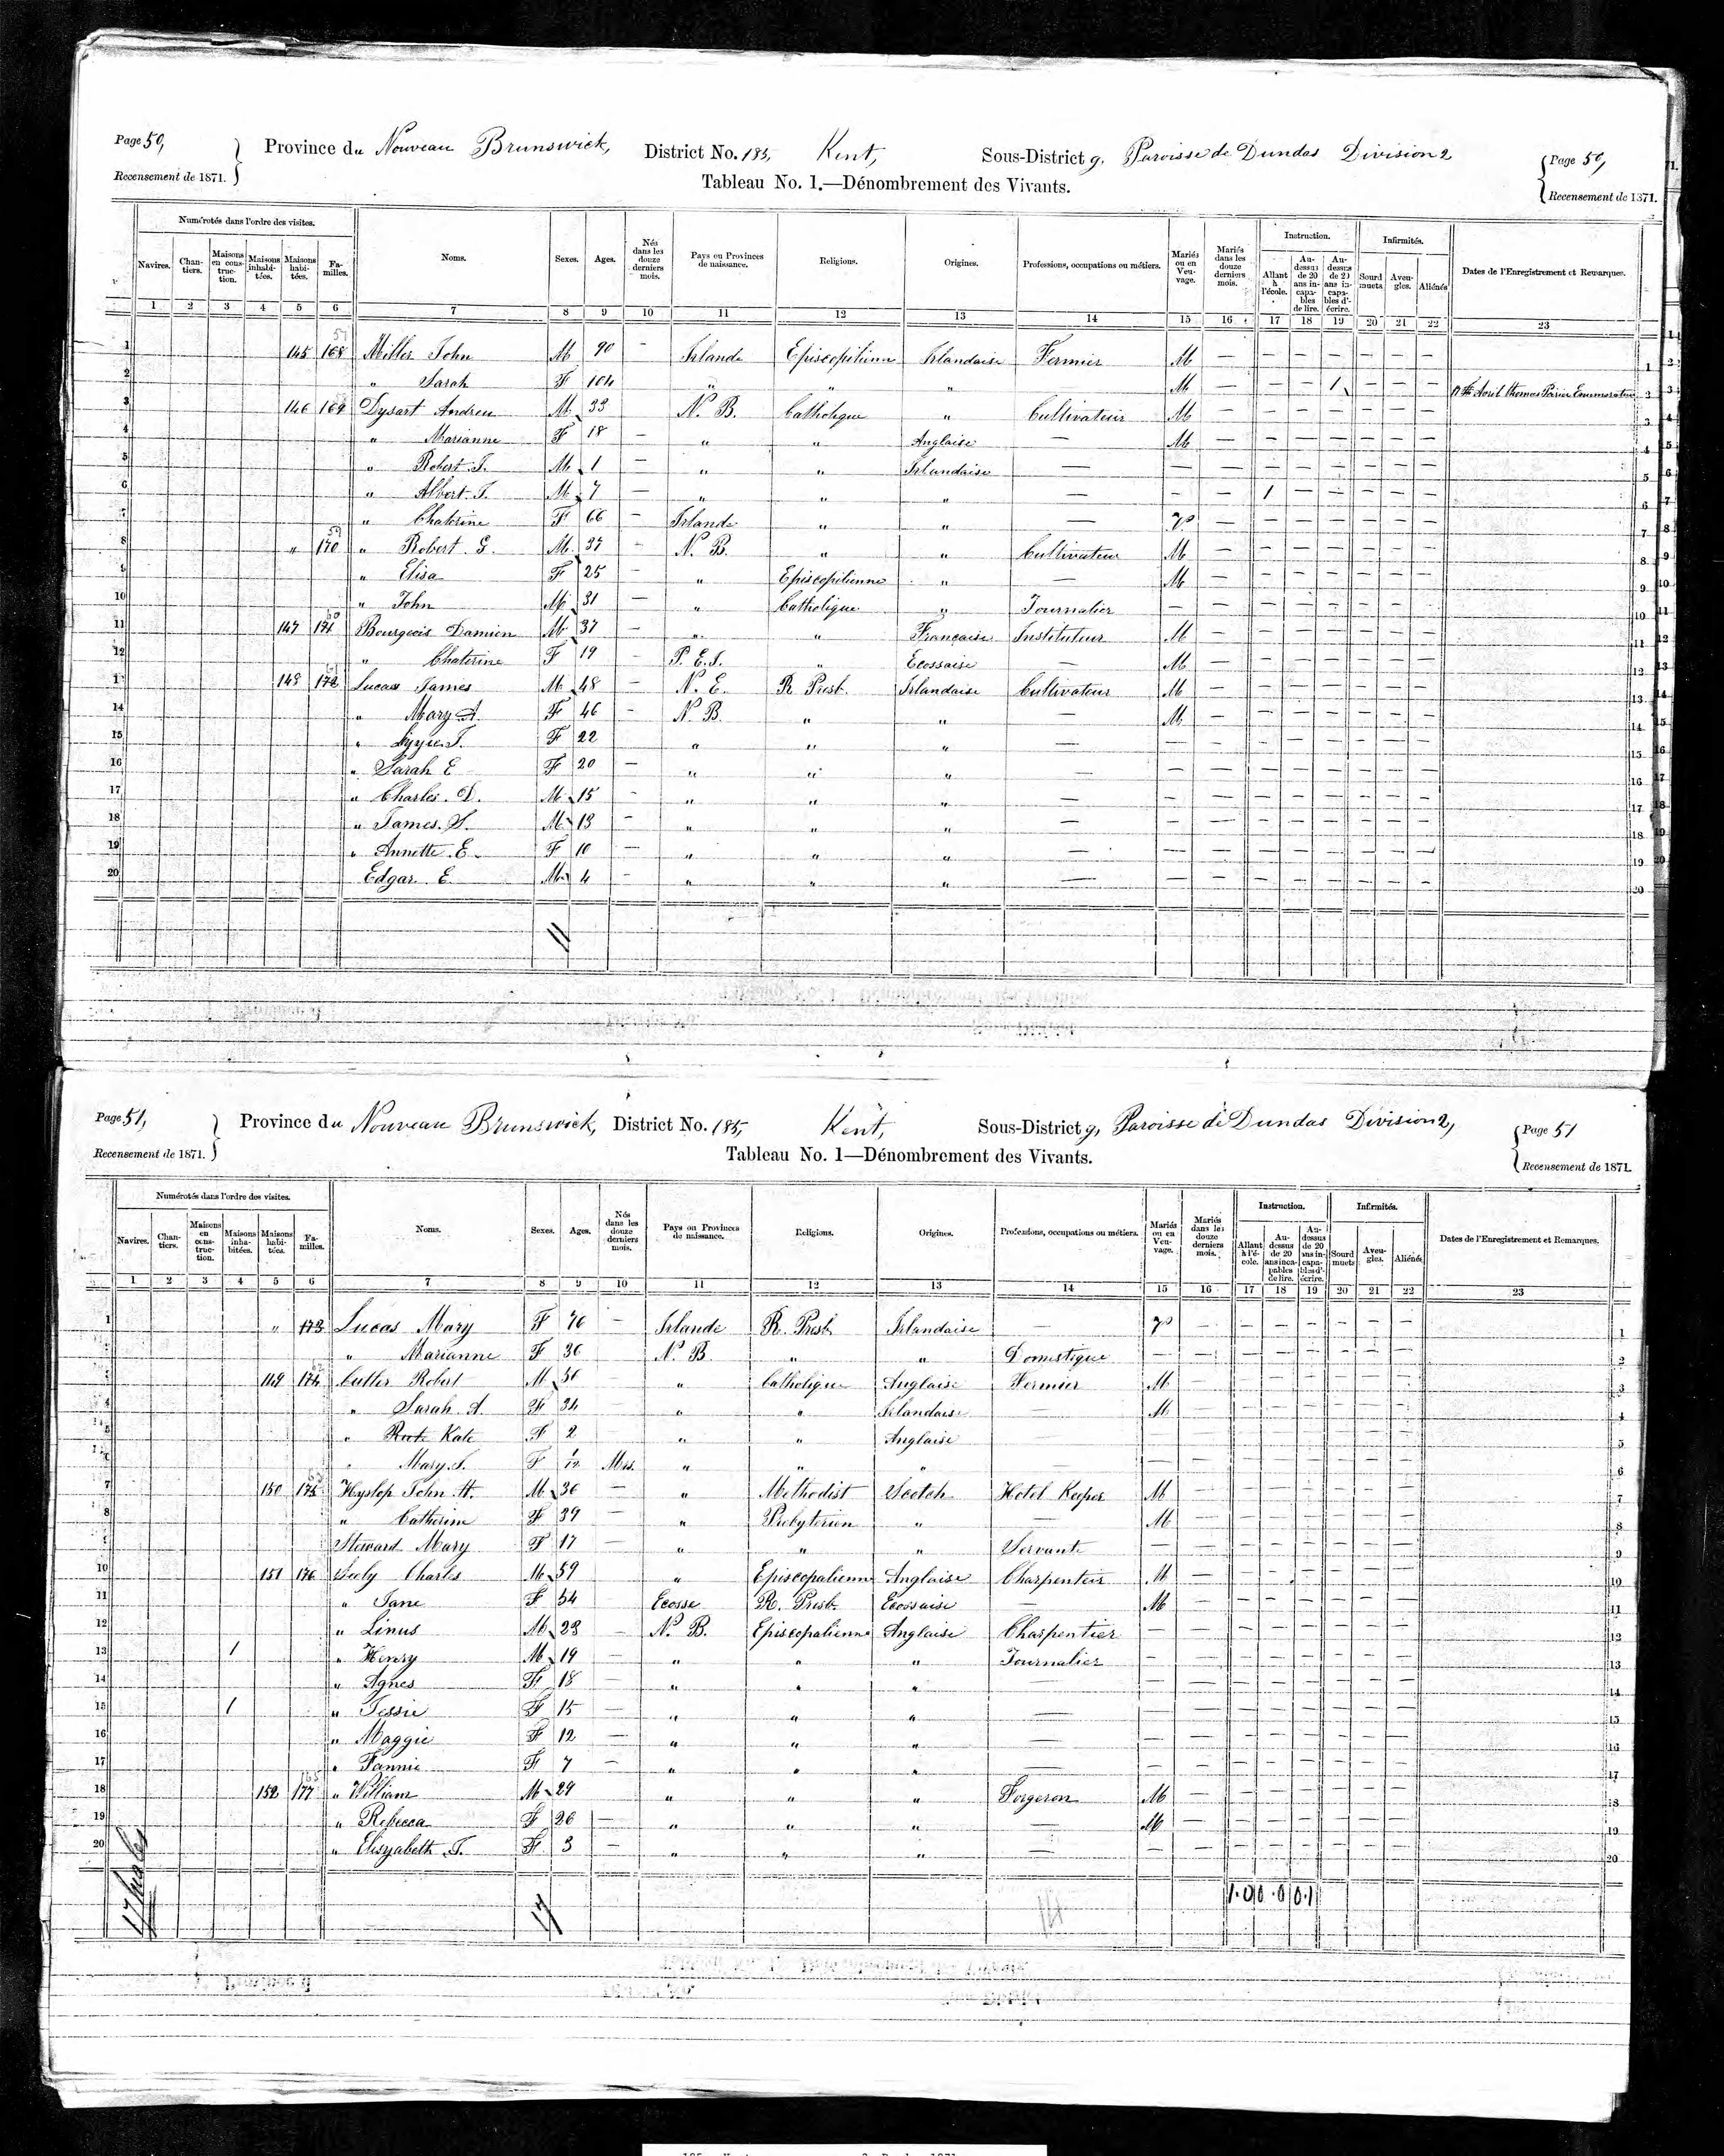 Page 50, Province du Nouveau Brunswick, District No. 185, Kent, Sous-District g, Paroisse de Dundas Division 2 Page 50,
Recensement de 1871. Tableau No. 1.—Dénombrement des Vivants. Recensement de 1871.
Numérotés dans l'ordre des visites. Noms. Sexes. Ages. Nés dans les douze derniers mois. Pays ou Provinces de naissance. Religions. Origines. Professions, occupations ou métiers. Mariés ou en Veuvage. Mariés dans les douze derniers mois. Instruction. Infirmités. Dates de l'Enregistrement et Remarques.
Navires. Chantiers. Maisons en construction. Maisons inhabitées. Maisons habitées. Familles. Allant à l'école. Au-dessus de 20 ans incapables de lire. Au-dessus de 20 ans incapables d'écrire. Sourd muets Aveugles. Aliénés
1 2 3 4 5 6 7 8 9 10 11 12 13 14 15 16 17 18 19 20 21 22 23
1 145 168 Miller John M 90 – Irlande Episcopilienne Irlandaise Fermier M — — — — — — — 1
2 " Sarah F 104 " " " M — — — 1 — — — Avril Thomas Enumerateur 2
3 146 169 Dysart Andrew M 33 N. B. Catholique " Cultivateur M — — — — — — — 3
4 " Marianne F 18 – " " Anglaise — M — — — — — — — 4
5 " Robert J. M 1 – " " Irlandaise — — — — — — — — — 5
6 " Albert J. M 7 — " " " — – — 1 — — — — — 6
7 " Chaterine F 66 – Irlande " " — — — — — — — — 7
8 " 170 " Robert G. M 37 – N. B. " " Cultivateur M — — — — — — — 8
9 " Elisa F 25 – " Episcopilienne " — M — — — — — — — 9
10 " John M 31 — " Catholique " Journalier — — — — — — — — 10
11 147 171 Bourgeois Damien M 37 – " " Française Instituteur M — — — — — — — 11
12 " Chaterine F 19 – P. E. I. " Ecossaise — M — — — — — — — 12
13 148 172 Lucas James M 48 – N. E. R Presb. Irlandaise Cultivateur M — — — — — — — 13
14 " Mary A. F 46 – N. B. " " — M — — — — — — — 14
15 " F 22 " " " — — — — — — — — — 15
16 " Sarah E F 20 – " " " — — — — — — — — — 16
17 " Charles. D. M 15 - " " " — — — — — — — — — 17
18 " James. S. M 13 – " " " — — — — — — — — — 18
19 " Annette. E. F 10 — " " " — — — — — — — — — 19
20 Edgar. E. M 4 – " " " — — — — — — — — — 20
11
Page 51, Province du Nouveau Brunswick, District No. 185, Kent, Sous-District g, Paroisse de Dundas Division 2, Page 51
Recensement de 1871. Tableau No. 1—Dénombrement des Vivants. Recensement de 1871.
Numérotés dans l'ordre des visites. Noms. Sexes. Ages. Nés dans les douze derniers mois. Pays ou Provinces de naissance. Religions. Origines. Professions, occupations ou métiers. Mariés ou en Veuvage. Mariés dans les douze derniers mois. Instruction. Infirmités. Dates de l'Enregistrement et Remarques.
Navires. Chantiers. Maisons en construction. Maisons inhabitées. Maisons habitées. Familles. Allant à l'école. Au-dessus de 20 ans incapables de lire. Au-dessus de 20 ans incapables d'écrire. Sourd muets Aveugles. Aliénés
1 2 3 4 5 6 7 8 9 10 11 12 13 14 15 16 17 18 19 20 21 22 23
1 " 173 Lucas Mary F 76 – Irlande R. Presb. Irlandaise — — — — — — — — 1
2 " Marianne F 36 N. B " " Domestique — — — — — — — — 2
3 149 174 Cutler Robert M 36 " Catholique Anglaise Fermier M — — — — — — — 3
4 " Sarah A. F 34 " " Irlandaise — M — — — — — — — 4
5 " Kate F 2 " " Anglaise — — — — — — — — — 5
6 " Mary F 1/12 Mrs. " " " — — — — — — — — — 6
7 150 175 Hyslop John H. M 36 — " Methodist Scotch Hotel Keeper M — — — — — — — 7
8 " Catherine F 39 — " Presbyterien " — M — — — — — — — 8
9 Steward Mary F 17 " " " Servante — — — — — — — — 9
10 151 176 Seely Charles M 59 " Episcopalienne Anglaise Charpentier M — — — — — — — 10
11 " Jane F 54 Ecosse R. Presb. Ecossaise — M — — — — — — — 11
12 " Linus M 23 — N. B. Episcopalienne Anglaise Charpentier — — — — — — — — 12
13 1 " Henry M 19 — " " " Journalier — — — — — — — — 13
14 " Agnes F 18 — " " " — — — — — — — — — 14
15 1 " Jessie F 15 — " " " — — — — — — — — — 15
16 " Maggie F 12 — " " " — — — — — — — — — 16
17 " Fannie F 7 – " " " — — — — — — — — — 17
18 152 177 " William M 29 " " " Forgeron M — — — — — — — 18
19 " Rebecca F 26 — " " " — M — — — — — — — 19
20 " Elisyabeth J. F 3 – " " " — — — — — — — — — 20
17